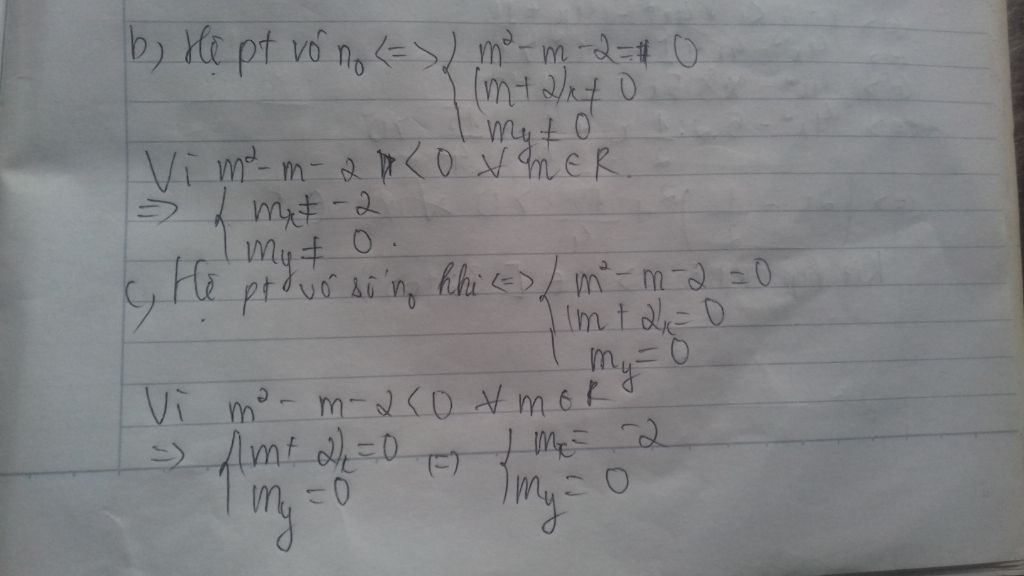 b, Hệ pt vô n₀ <=> { m² - m - 2 = 0
(m + 2)x ≠ 0
my ≠ 0
Vì m² - m - 2 < 0 ∀ m ∈ R.
=> { mx ≠ -2
my ≠ 0.
c, Hệ pt vô số n₀ khi <=> { m² - m - 2 = 0
(m + 2)x = 0
my = 0
Vì m² - m - 2 < 0 ∀ m ∈ R
=> { (m + 2)x = 0 (=) { mx = -2
my = 0 my = 0